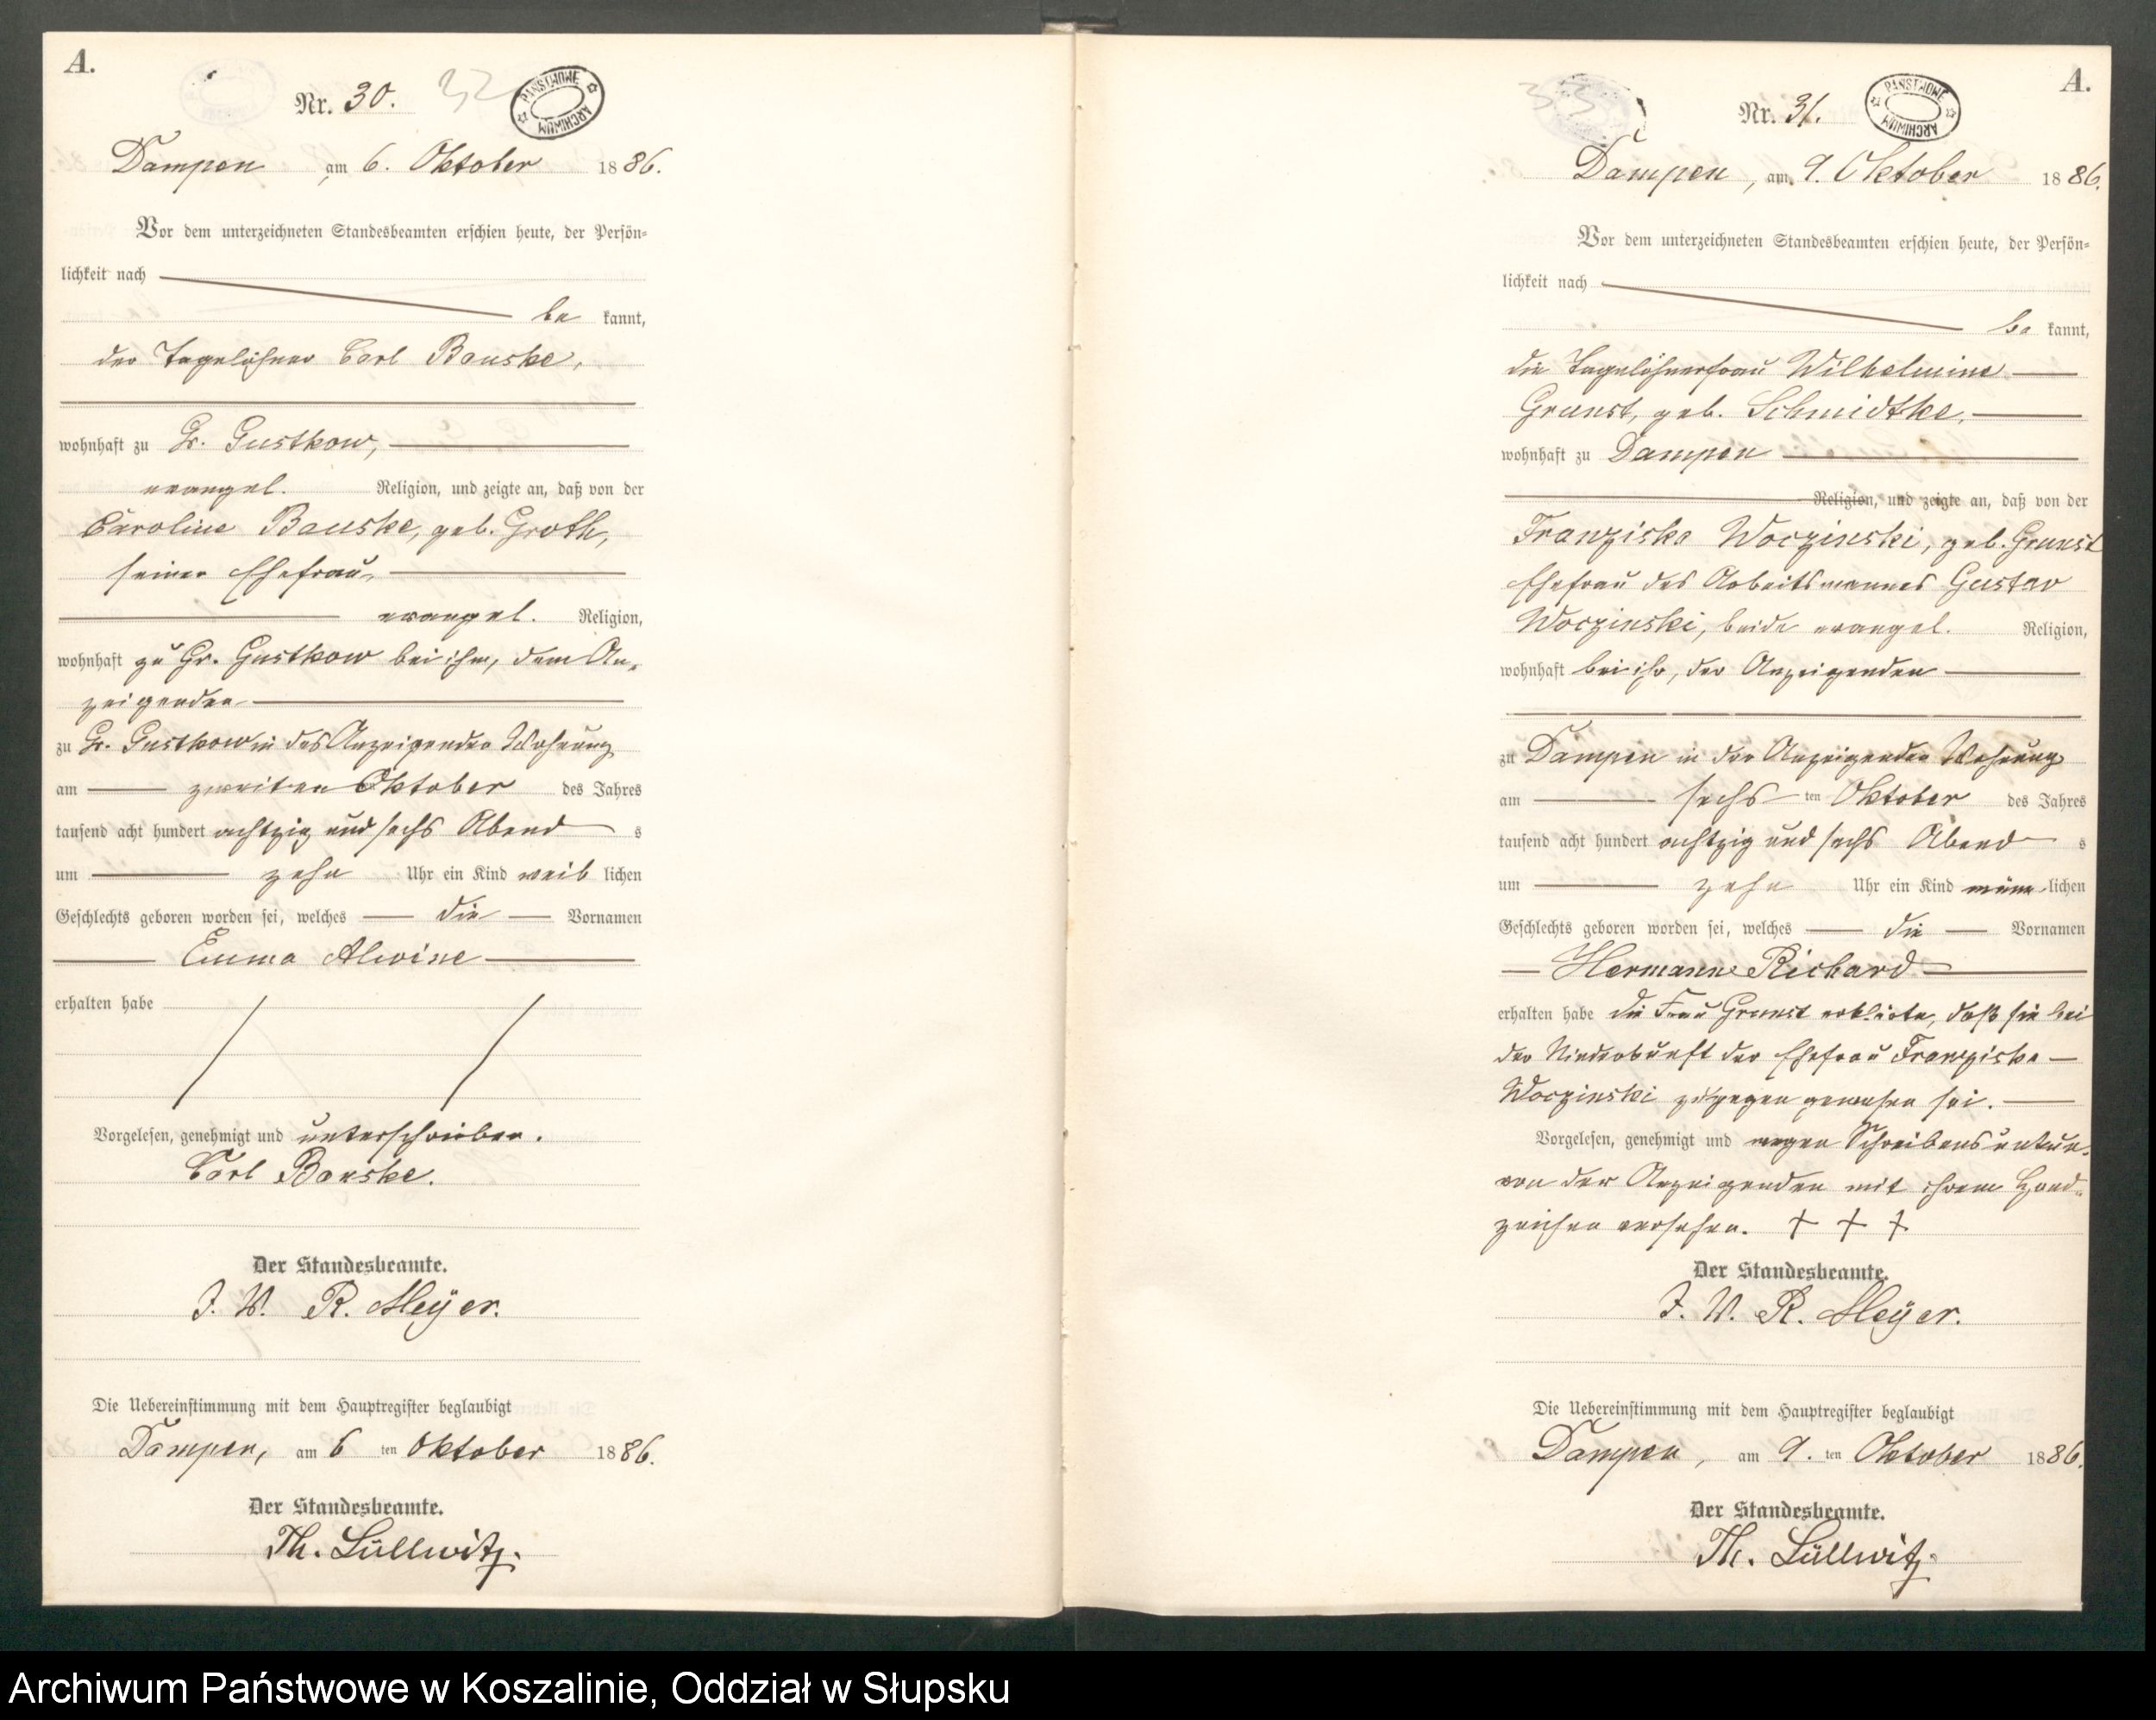 A.
Nr. 30.
32
PAŃSTWOWE ARCHIWUM
Dampen am 6. Oktober 1886.
Vor dem unterzeichneten Standesbeamten erschien heute, der Persön-
lichkeit nach
be kannt,
der Tagelöhner Carl Banske,
wohnhaft zu Gr. Gustkow,
evangel. Religion, und zeigte an, daß von der
Caroline Banske, geb. Groth,
seiner Ehefrau,
evangel. Religion,
wohnhaft zu Gr. Gustkow bei ihm, dem An-
zeigenden
zu Gr. Gustkow in des Anzeigenden Wohnung
am zweiten Oktober des Jahres
tausend acht hundert achtzig und sechs Abend s
um zehn Uhr ein Kind weib lichen
Geschlechts geboren worden sei, welches die Vornamen
Emma Alwine
erhalten habe
Vorgelesen, genehmigt und unterschrieben.
Carl Banske.
Der Standesbeamte.
J. W. R. Meÿer.
Die Uebereinstimmung mit dem Hauptregister beglaubigt
Dampen, am 6 ten Oktober 1886.
Der Standesbeamte.
Th. Lüllwitz.
A.
Nr. 31.
33
PAŃSTWOWE ARCHIWUM
Dampen, am 9. Oktober 1886.
Vor dem unterzeichneten Standesbeamten erschien heute, der Persön-
lichkeit nach
be kannt,
die Tagelöhnerfrau Wilhelmine
Granst, geb. Schmidtke,
wohnhaft zu Dampen
Religion, und zeigte an, daß von der
Franziska Woczinski, geb. Granst
Ehefrau des Arbeitsmannes Gustav
Woczinski, beide evangel. Religion,
wohnhaft bei ihr, der Anzeigenden
zu Dampen in der Anzeigenden Wohnung
am sechs ten Oktober des Jahres
tausend acht hundert achtzig und sechs Abend s
um zehn Uhr ein Kind männ lichen
Geschlechts geboren worden sei, welches die Vornamen
Hermann Richard
erhalten habe die Frau Granst erklärte, daß sie bei
der Niederkunft der Ehefrau Franziska
Woczinski zugegen gewesen sei.
Vorgelesen, genehmigt und wegen Schreibensunkun.
von der Anzeigenden mit ihrem Hand-
zeichen versehen. + + +
Der Standesbeamte.
J. W. R. Meÿer.
Die Uebereinstimmung mit dem Hauptregister beglaubigt
Dampen, am 9. ten Oktober 1886.
Der Standesbeamte.
Th. Lüllwitz.
Archiwum Państwowe w Koszalinie, Oddział w Słupsku